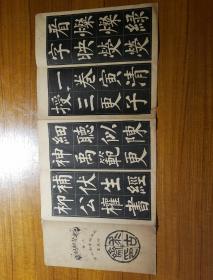 看燦燦綠
字映熒熒
一卷寅清
授三更子
細聽似陳
神禹範更
補伏生經
柳公權書